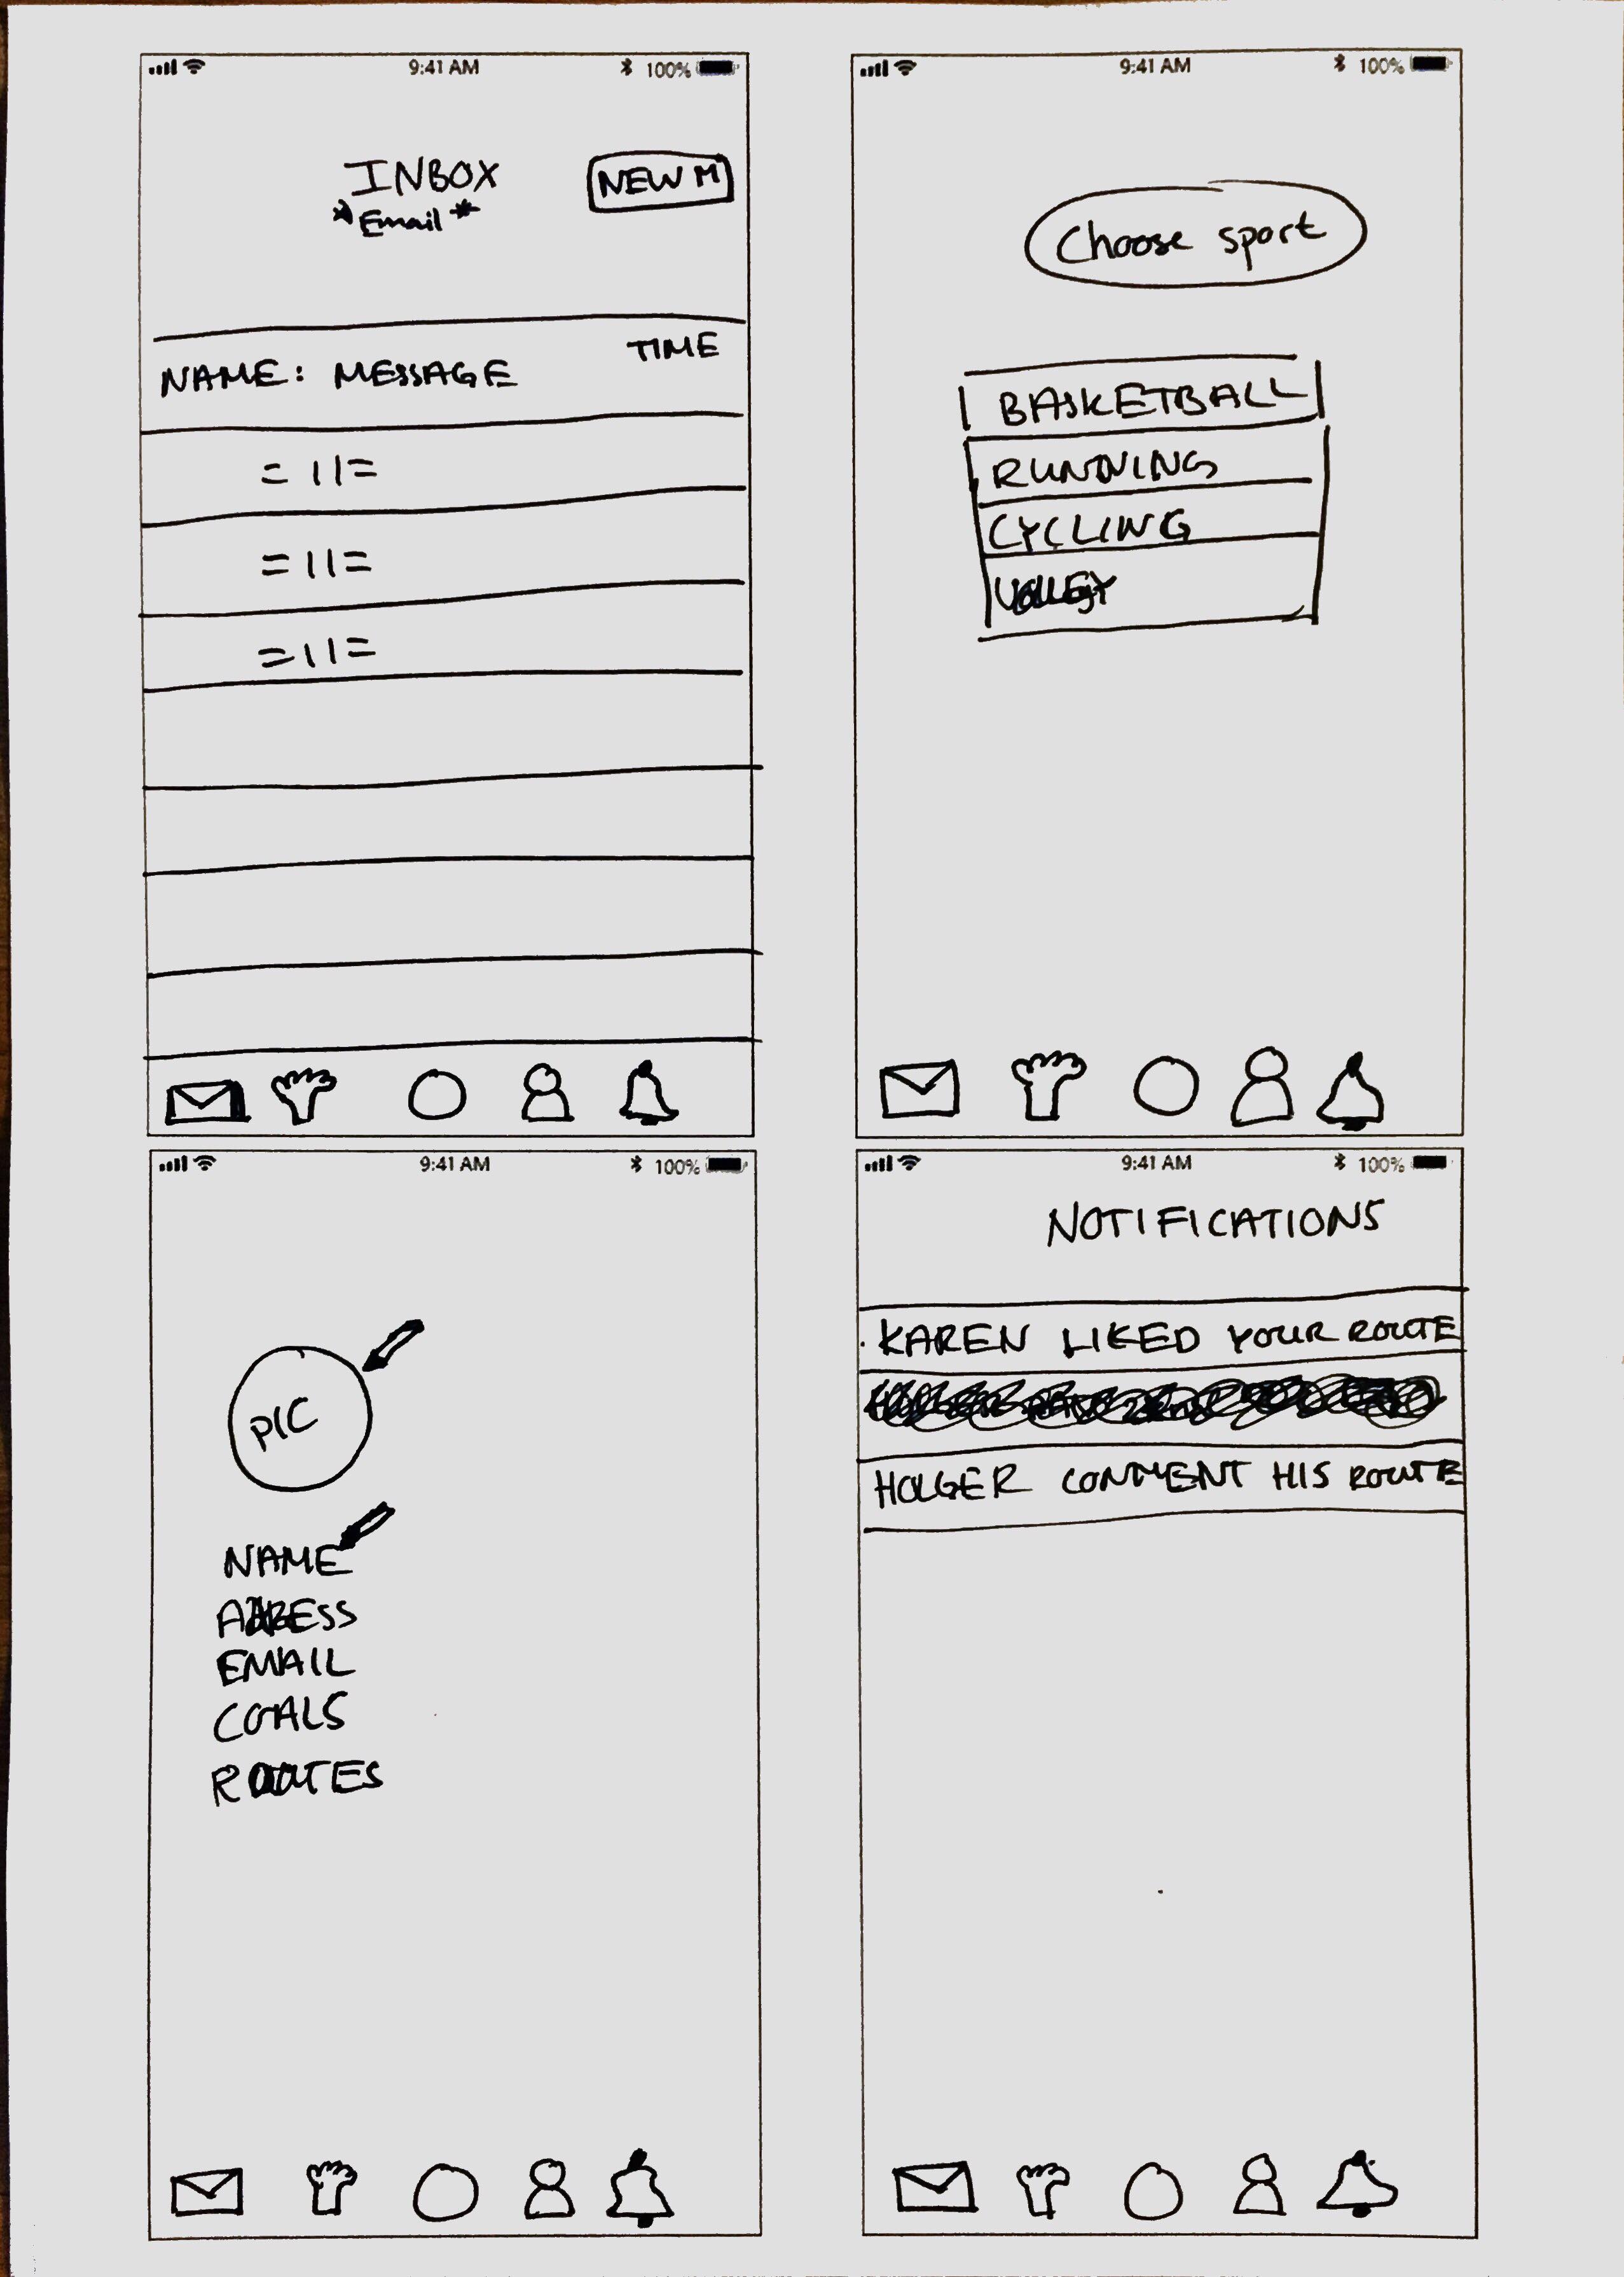 9:41 AM 100%
INBOX
*Email*
NEW M
NAME: MESSAGE TIME
= 11 =
= 11 =
= 11 =
9:41 AM 100%
Choose sport
BASKETBALL
RUNNING
CYCLING
VOLLEY
9:41 AM 100%
PIC
NAME
ADRESS
EMAIL
GOALS
ROUTES
9:41 AM 100%
NOTIFICATIONS
KAREN LIKED YOUR ROUTE
HOLGER COMMENT HIS ROUTE